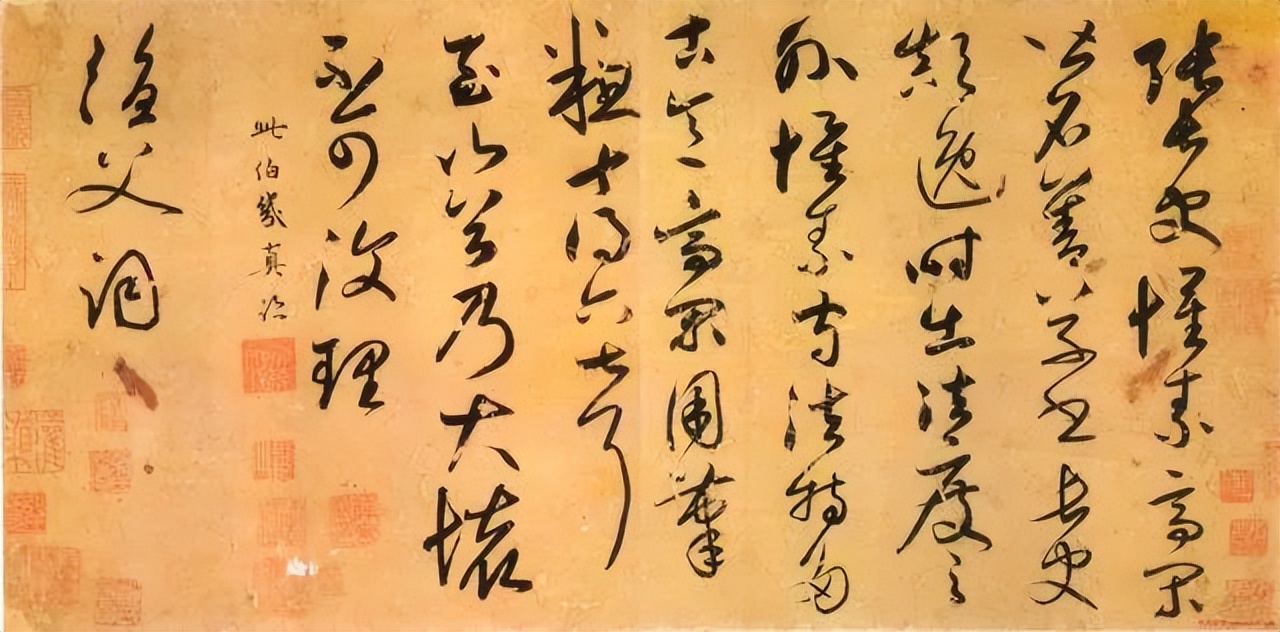 張長史懷素高閑
皆名善草書長史
顛逸時出法度之
外懷素守法特多
古意高閑用筆
粗十得六七耳
至山谷乃大壞
不可復理
此伯幾真迹
父